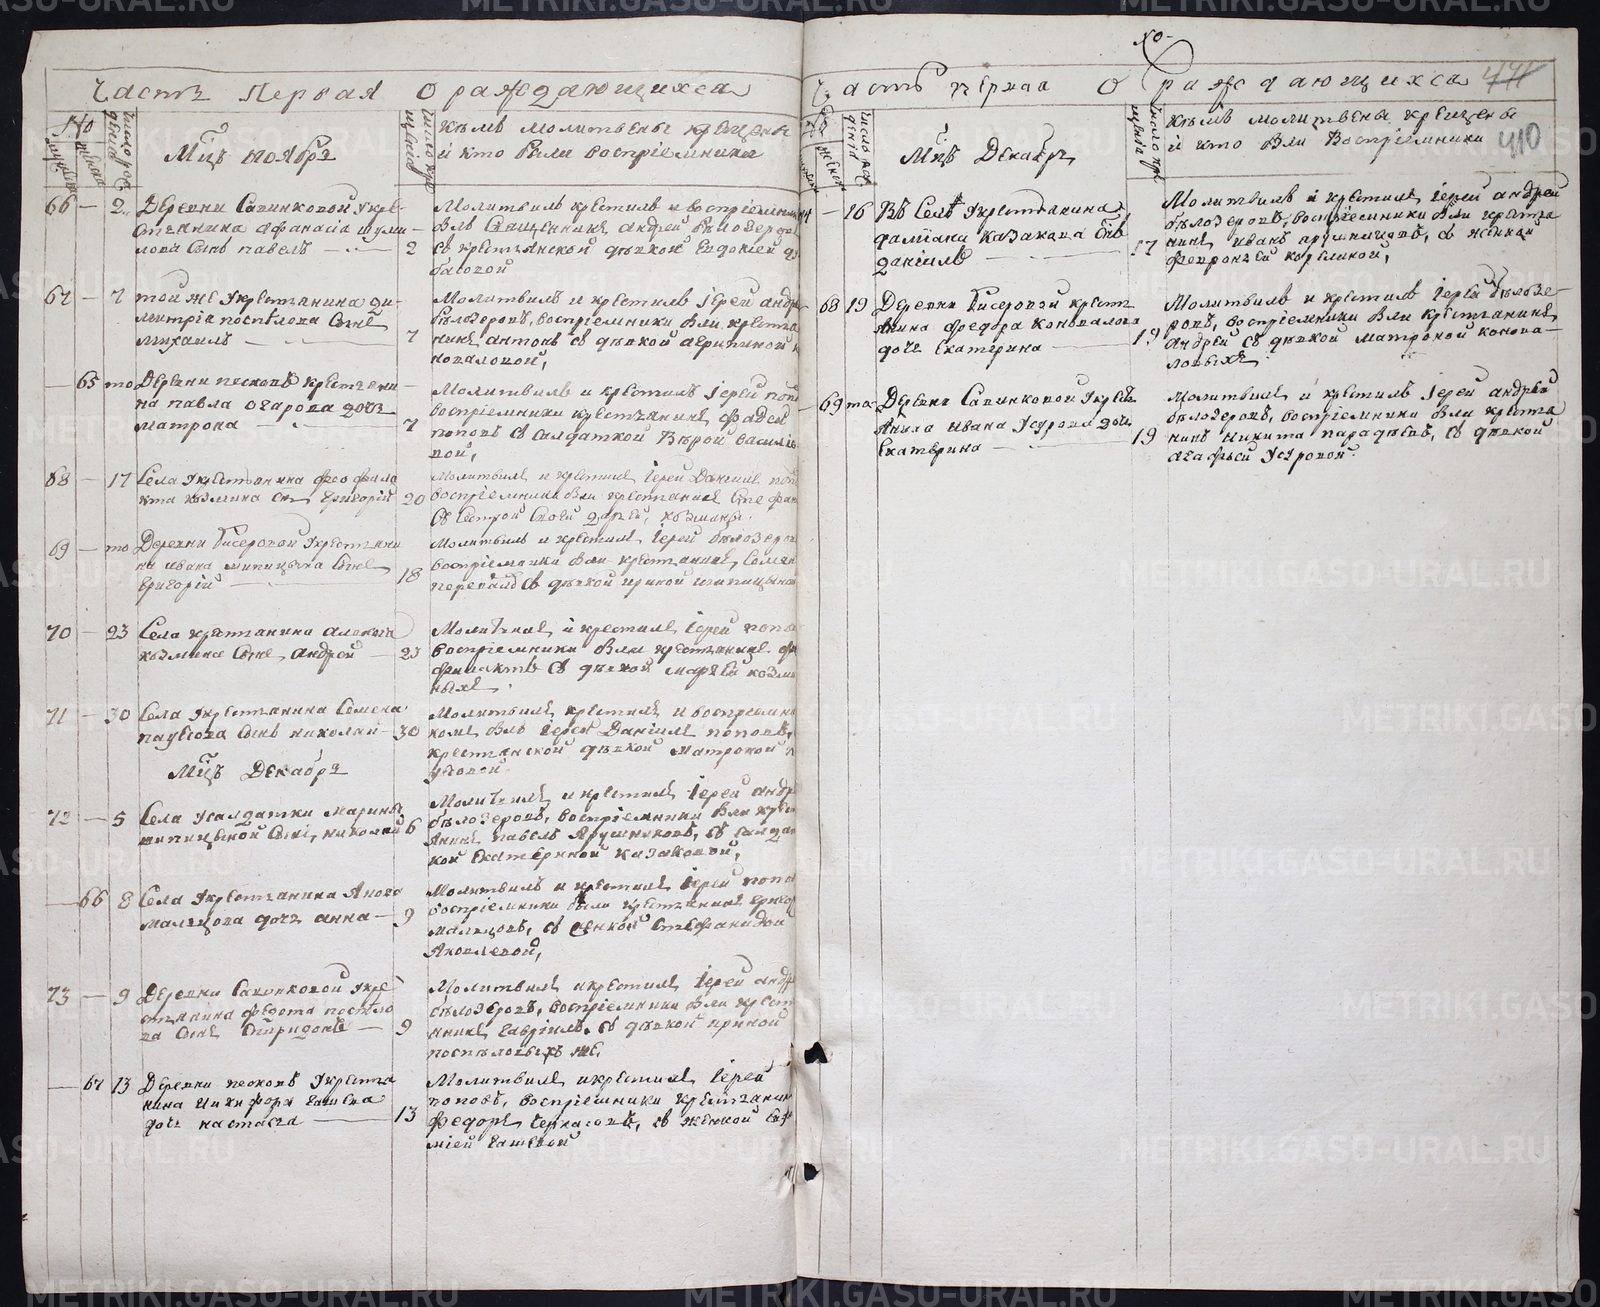 Часть Первая О раждающихся
Мцъ ноябрь
кѣмъ молитвены крещены
и кто были воспріемники
66 – 2 Деревни Савинковой укре-
стьянина афанасіа шуми
лова сынъ павелъ
Молитвилъ крестилъ и воспріемник
былъ Священникъ андрей бѣлозеровъ
2 съ крестьянской дѣвкой Евдокіей
67 – 7 той же укрестьянина ди-
митріа поспѣлова сынъ
михаилъ
Молитвилъ и крестилъ іерей андр
бѣлозеровъ, воспріемники были крестьа
7 нинъ антонъ съ дѣвкой агрипиной к
новаловой,
65 то Деревни песковъ крестьяни
на павла огарова дочь
матрона
Молитвилъ и крестилъ іерей попо
воспріемники крестьянинъ фадей
7 поповъ съ салдаткой Вѣрой василь
вой,
68 – 17 Села укрестьянина феофила
кта козмина сынъ григорій
Молитвилъ и крестилъ іерей Даніилъ поп
20 воспріемники были крестьянинъ стефан
съ сестрой своей дарьей, козмины.
69 – то Деревни Бисеровой укрестьяни
на ивана шипицына сынъ
григорій
Молитвилъ и крестилъ іерей бѣлозеро
воспріемники были крестьянинъ, семен
18 съ дѣвкой ириной шипицыно
70 – 23 Села крестьянина алексѣа
козмина сынъ, андрей
Молитвилъ и крестилъ іерей попо
23 воспріемники были крестьянинъ фе
филактъ съ дѣвкой марьей козми
ныхъ.
71 – 30 Села укрестьянина семена
паутова сынъ николай
Молитвилъ, крестилъ и воспріемни
30 комъ былъ іерей Даніилъ поповъ,
крестьянской дѣвкой матроной п
утовой.
Мцъ Декабрь
72 – 5 Села усалдатки марины
шипицыной сынъ, николай
Молитвилъ и крестилъ іерей андр
6 бѣлозеровъ, воспріемники были крест
анинъ павелъ ярушниковъ, съ салдат
кой екатериной казаковой,
66 8 Села укрестьянина якова
мальцова дочь анна
Молитвилъ и крестилъ іерей попов
9 воспріемники были крестьянинъ григор
мальцовъ, съ женкой стефанидой
яковлевой,
73 – 9 Деревни Савинковой укре
стьянина федота поспѣло
ва сынъ спиридонъ
Молитвилъ икрестилъ іерей андр
бѣлозеровъ, воспріемники были крест
9 нинъ гавріилъ, съ дѣвкой ириной
поспѣловыхъ же,
67 13 Деревни песковъ укрестьа
нина никифора гашева
дочь настасіа
Молитвилъ икрестилъ іерей
поповъ, воспріемники крестьанин
13 федоръ черкасовъ, съ женкой
міей гашевой
Часть перваа О раждающихся 441
Мцъ Декабрь
кѣмъ молитвены крещены
и кто были воспріемники 410
74 – 16 Въ Селѣ укрестьанина
даміана казакова сынъ
даніилъ
Молитвилъ и крестилъ іерей андрей
бѣлозеровъ, воспріемники были крестьа
17 нинъ иванъ ярушниковъ, съ женкой
февроньей корелиной,
68 19 Деревни Бисеровой крестъ
янина федора коновалова
дочь Екатерина
Молитвилъ и крестилъ іерей бѣлозе-
ровъ, воспріемники были крестьанинъ
19 андрей съ дѣвкой матроной конова-
ловыхъ
69 то Деревни Савинковой укресть
янина ивана устрова дочь
Екатерина
Молитвилъ и крестилъ іерей андрей
бѣлозеровъ, воспріемники были крестьа
19 нинъ никита парадѣевъ, съ дѣвкой
агафьей устровой.
METRIKI.GASO-URAL.RU